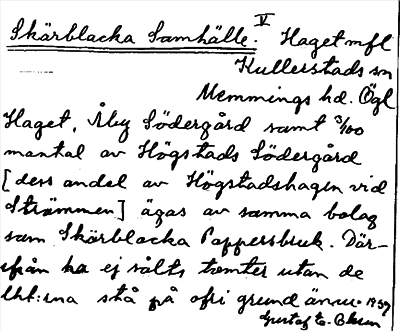 Skärblacka Samhälle. V Haget mfl
Kullerstads sn
Memmings hd. Ögl
Haget, Åby Södergård samt 3/100
mantal av Högstads Södergård
[dess andel av Högstadshagen vid
Strömmen] ägas av samma bolag
som Skärblacka Pappersbruk. Där-
ifrån ha ej sålts tomter utan de
lht:rna stå på ofri grund ännu. 1937
Gustaf E.